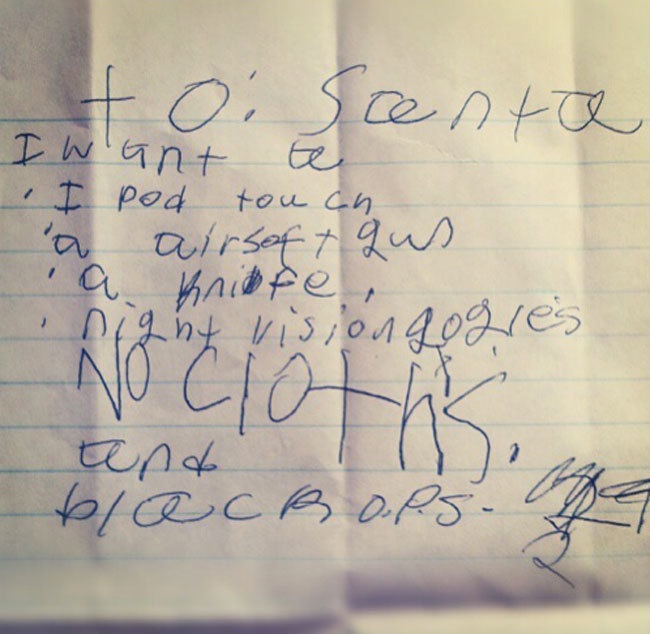 to: Santa
I want a
· I pod touch
· a airsoft gun
· a knife.
· night vision gogles
NO Cloths.
and
black o.p.s.
2